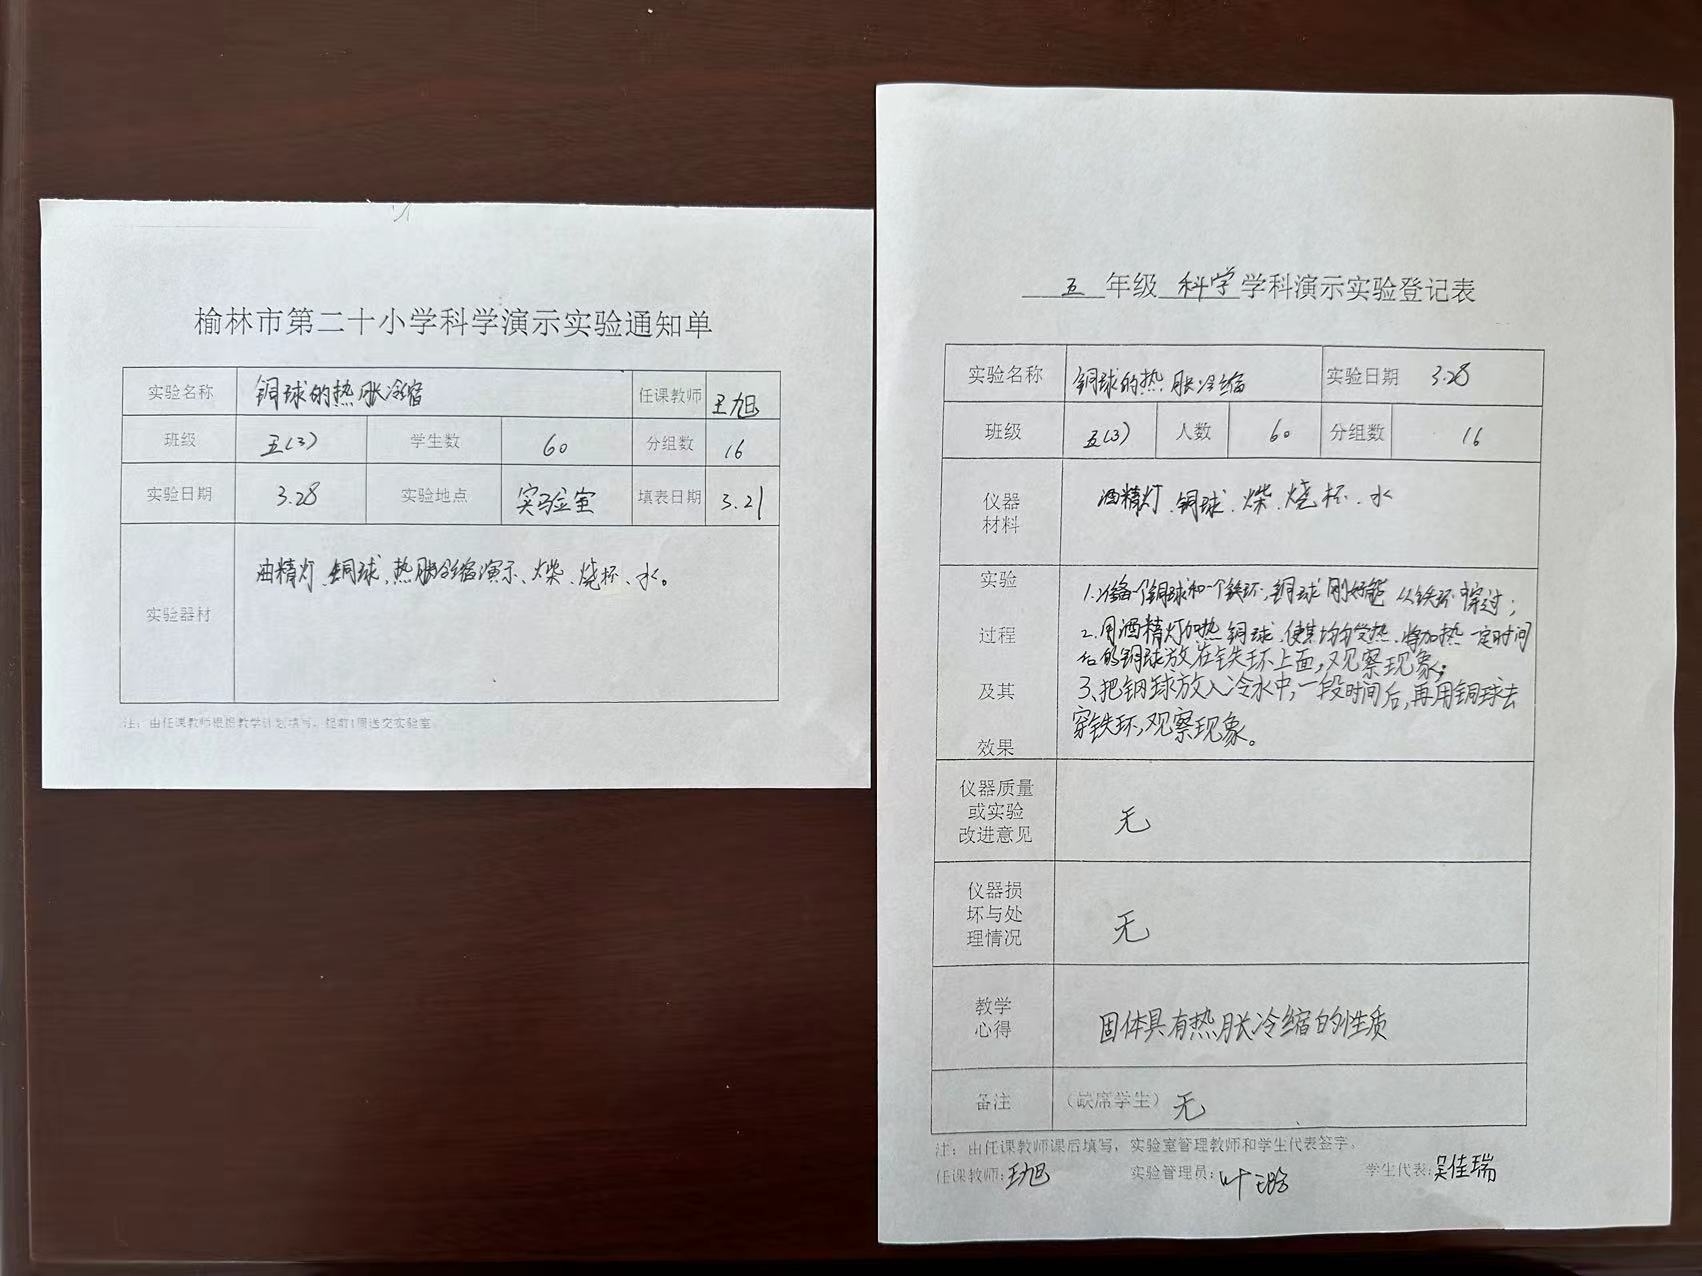 榆林市第二十小学科学演示实验通知单
实验名称 铜球的热胀冷缩 任课教师 王旭
班级 五(3) 学生数 60 分组数 16
实验日期 3.28 实验地点 实验室 填表日期 3.21
实验器材 油精灯、铜球、热胀冷缩演示、火柴、烧杯、水。
注：由任课教师根据教学计划填写，提前1周送交实验室。
五年级科学学科演示实验登记表
实验名称 铜球的热胀冷缩 实验日期 3.28
班级 五(3) 人数 60 分组数 16
仪器材料 酒精灯、铜球、火柴、烧杯、水
实验过程及其效果
1.准备一个铜球和一个铁环,铜球刚好能从铁环中穿过;
2.用酒精灯加热铜球,使其均匀发热,将加热一定时间
后的铜球放在铁环上面,观察现象;
3、把铜球放入冷水中,一段时间后,再用铜球去
穿铁环,观察现象。
仪器质量或实验改进意见 无
仪器损坏与处理情况 无
教学心得 固体具有热胀冷缩的性质
备注 (缺席学生) 无
注：由任课教师课后填写，实验室管理教师和学生代表签字。
任课教师:王旭 实验管理员:叶璐 学生代表:吴佳瑞